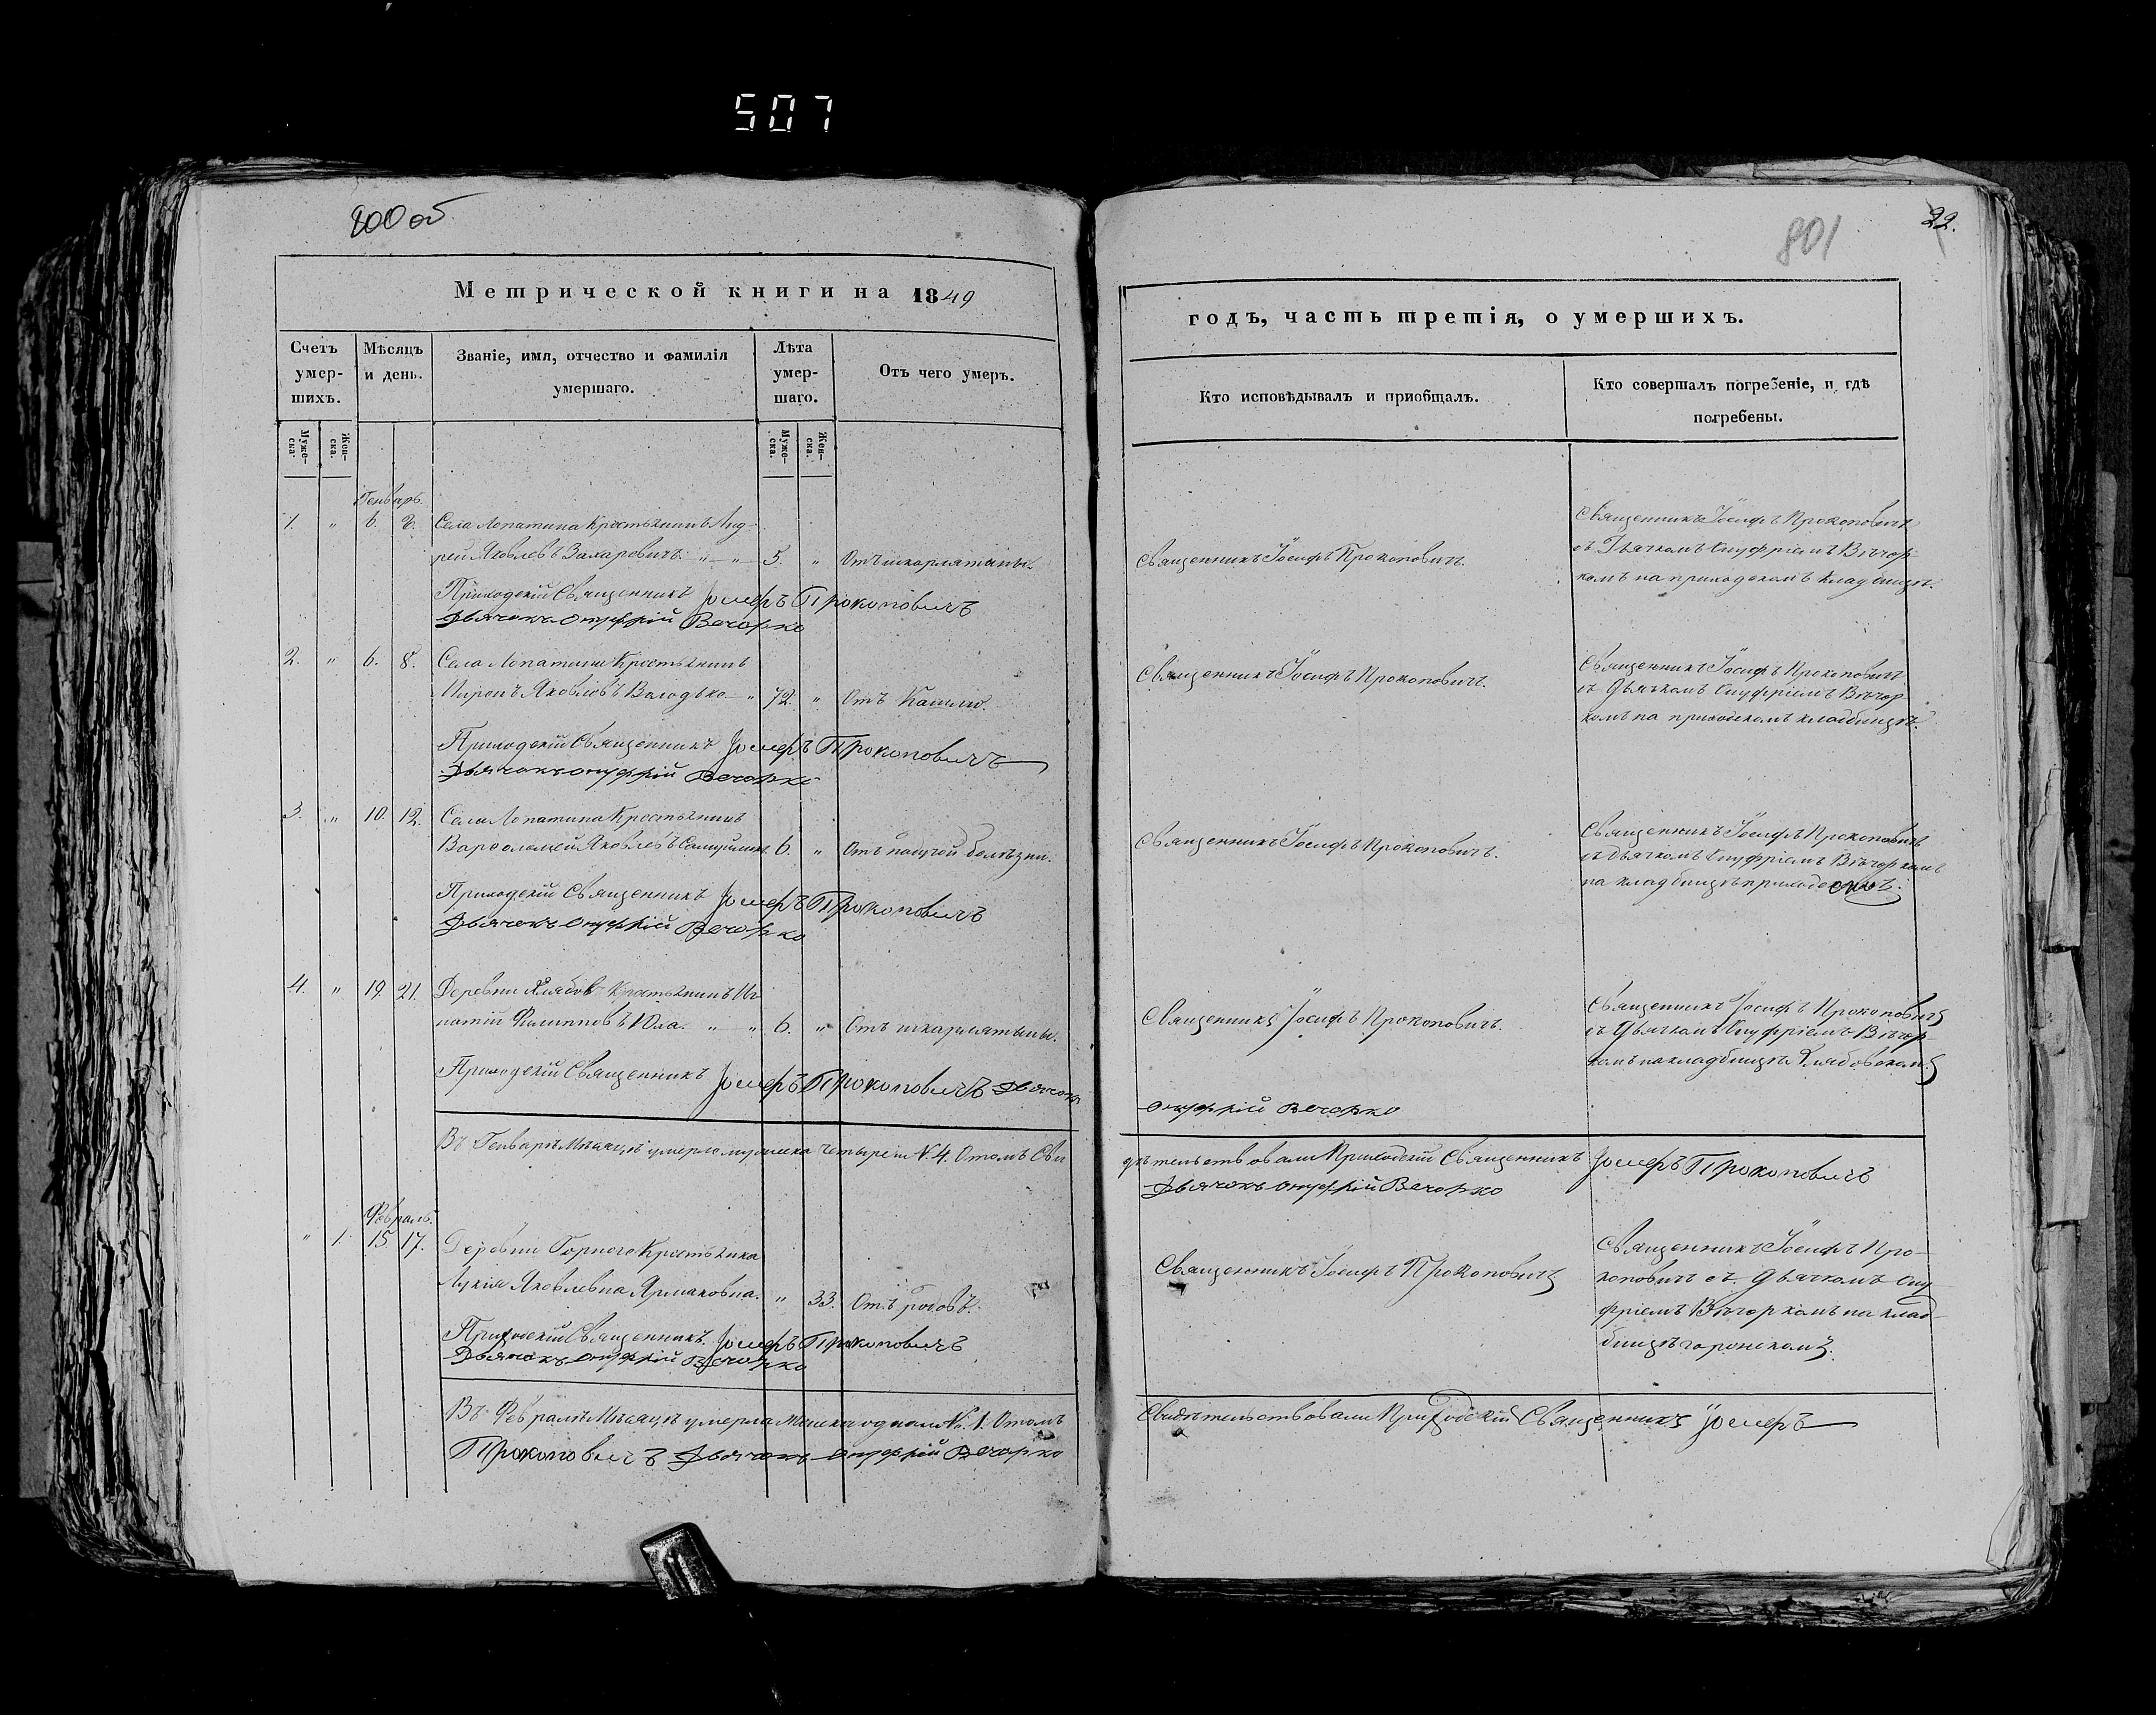 507
800 об
Метрической книги на 1849
Счетъ умер-шихъ.
Мѣсяцъ и день.
Званіе, имя, отчество и фамилія умершаго.
Лѣта умер-шаго.
Отъ чего умеръ.
Муже-ска.
Жен-ска.
Муже-ска.
Жен-ска.
Генварь.
1. " 6. 8. Села Лопатина Крестьянинъ Анд-
рей Яковлевъ Захаревичъ. " " 5. " Отъ шкарлятины.
Приходскій Священникъ Іосифъ Прокоповичъ
Дьячокъ Онуфрій Вечорко
2. " 6. 8. Села Лопатина Крестьянинъ
Миронъ Яковлевъ Володько " 72. " Отъ Кашлю.
Приходскій Священникъ Іосифъ Прокоповичъ
Дьячокъ Онуфрій Вечорко
3. " 10. 12. Села Лопатина Крестьянинъ
Варѳоломей Яковлевъ 6. " Отъ падучой болѣзни.
Приходскій Священникъ Іосифъ Прокоповичъ
Дьячокъ Онуфрій Вечорко
4. " 19. 21. Деревни Крестьянинъ Иг-
натій Филипповъ Юла. " " 6. " Отъ шкарлятыны.
Приходскій Священникъ Іосифъ Прокоповичъ Дьячокъ
Въ Генварѣ Мѣсяцѣ умерло мужеска четыре №. 4. О томъ Сви
Февраль.
" 1. 15. 17. Деревни Горного Крестьянка
Лукія Яковлевна Ярмаковна. " 33. Отъ родовъ.
Приходскій Священникъ. Іосифъ Прокоповичъ
Дьячокъ Онуфрій Вечорко
Въ Февралѣ Мѣсяцѣ умерла женска одна №. 1. О томъ
Прокоповичъ Дьячокъ Онуфрій Вечорко
801
22.
годъ, часть третія, о умершихъ.
Кто исповѣдывалъ и пріобщалъ.
Кто совершалъ погребеніе, и гдѣ погребены.
Священникъ Іосифъ Прокоповичъ.
Священникъ Іосифъ Прокоповичъ
съ Дьячкомъ Онуфріемъ Вѣчор-
комъ на приходскомъ кладбищѣ.
Священникъ Іосифъ Прокоповичъ.
Священникъ Іосифъ Прокоповичъ
съ Дьячкомъ Онуфріемъ Вѣчор-
комъ на приходскомъ кладбищѣ.
Священникъ Іосифъ Прокоповичъ.
Священникъ Іосифъ Прокоповичъ
съ Дьячкомъ Онуфріемъ Вѣчоркомъ
на кладбищѣ приходскомъ.
Священникъ Іосифъ Прокоповичъ.
Священникъ Іосифъ Прокоповичъ
съ Дьячкомъ Онуфріемъ Вѣчор-
комъ на кладбищѣ
Онуфрій Вечорко
дѣтельствовали Приходскій Священникъ Іосифъ Прокоповичъ
Дьячокъ Онуфрій Вечорко
Священникъ Іосифъ Прокоповичъ
Священникъ Іосифъ Про-
коповичъ съ Дьячкомъ Ону
фріемъ Вѣчоркомъ на клад-
бищѣ горонскомъ.
Свидѣтельствовали Приходскій Священникъ Іосифъ